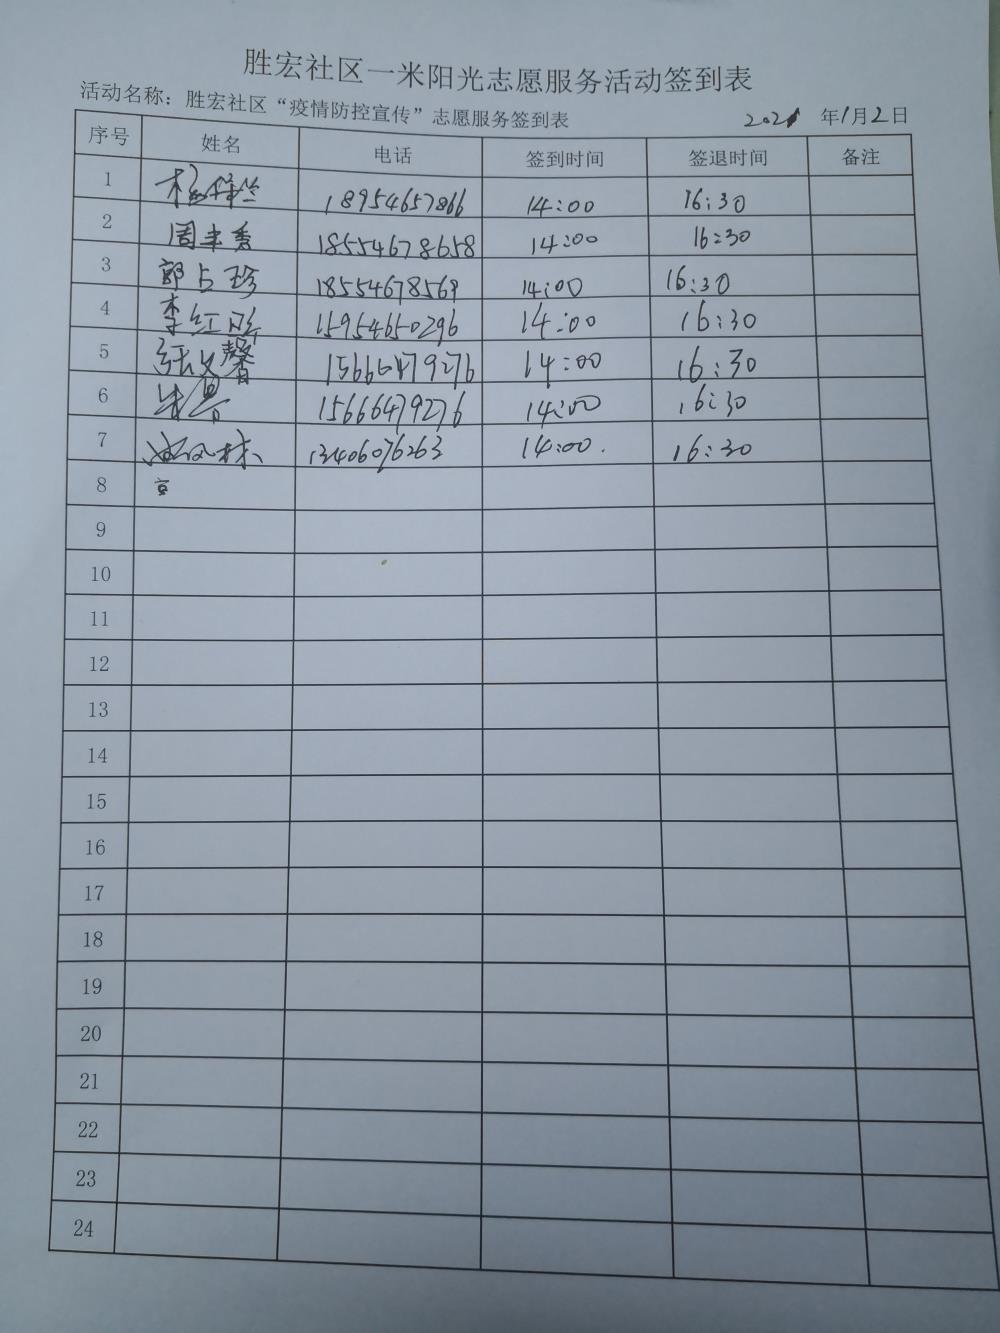 胜宏社区一米阳光志愿服务活动签到表
活动名称：胜宏社区“疫情防控宣传”志愿服务签到表 2021 年1月2日
序号 姓名 电话 签到时间 签退时间 备注
1 18954657866 14:00 16:30
2 周丰秀 18554678658 14:00 16:30
3 郭占珍 18554678569 14:00 16:30
4 李红 15954650296 14:00 16:30
5 张文馨 15666479276 14:00 16:30
6 15666479276 14:00 16:30
7 林 13406076263 14:00. 16:30
8
9
10
11
12
13
14
15
16
17
18
19
20
21
22
23
24